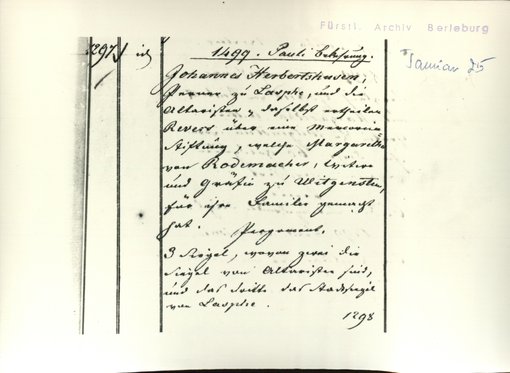 Fürstl. Archiv Berleburg
Januar 25
1297.
id
1499. Pauli bekehrung.
Johannes Herbertshusen,
Pernner zu Lasphe, und die
Altaristen daselbst ertheilen
Revers über eine Memorien
stiftung, welche Margaretha
von Rodemacher, Wittwe
und Gräfin zu Witgenstein,
für ihre Familie gemacht
hat. Pergament.
3 Siegel, wovon zwei die
Siegel von Altaristen sind,
und das dritte das Stadtsiegel
von Lasphe.
1298